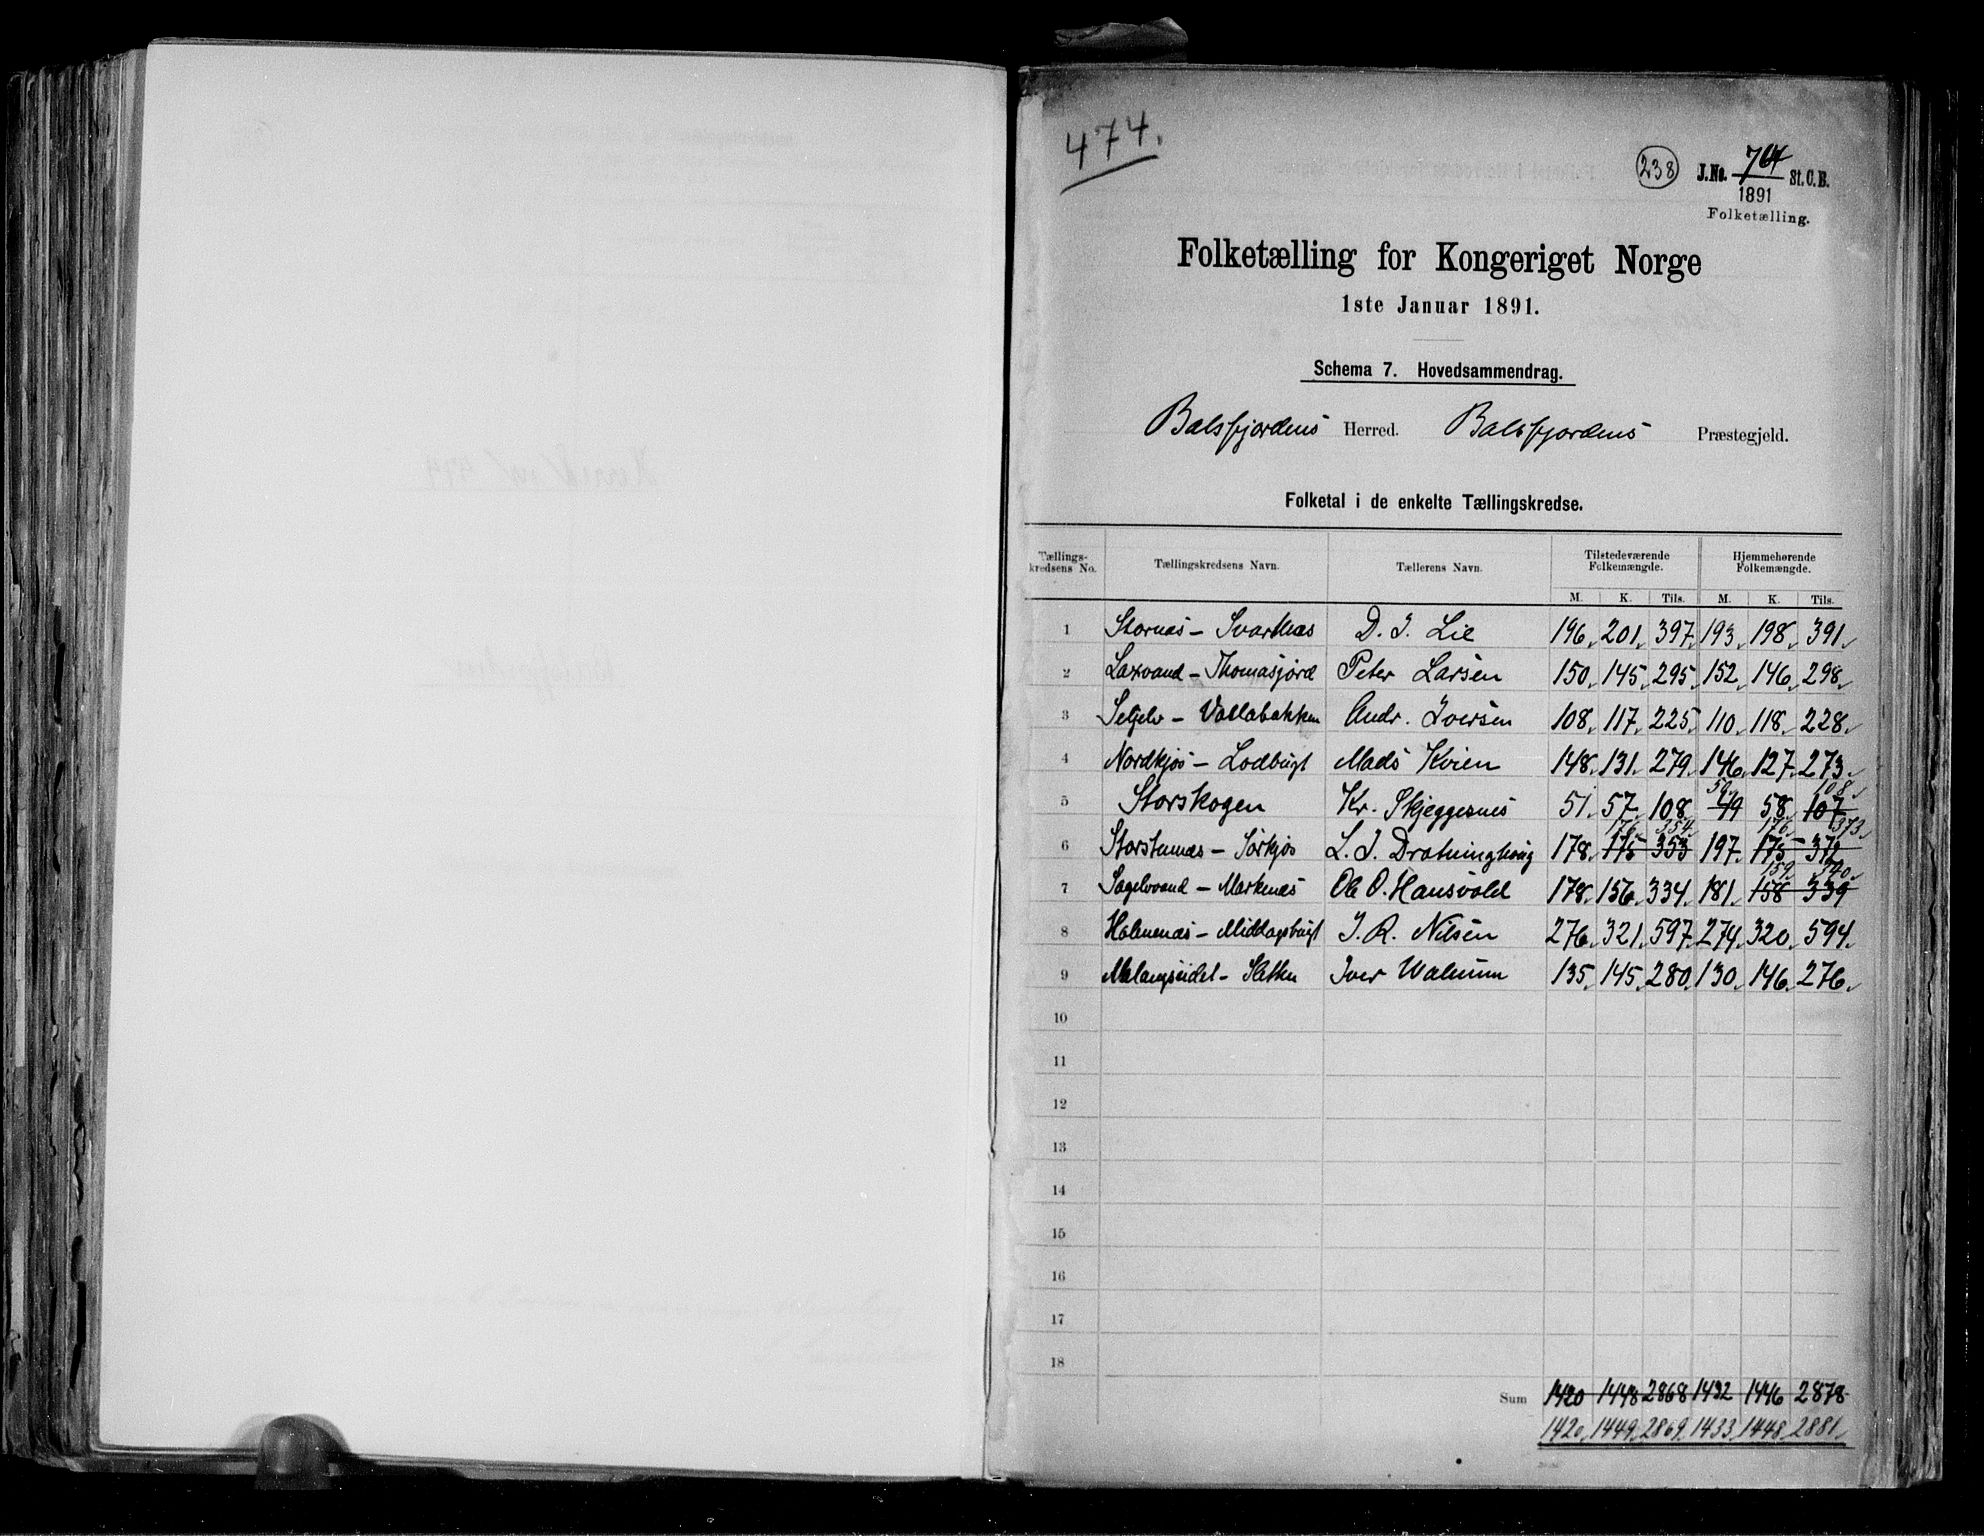 474.
238 J.No. 764 St.C.B.
1891
Folketælling.
Folketælling for Kongeriget Norge
1ste Januar 1891.
Schema 7. Hovedsammendrag.
Balsfjordens Herred. Balsfjordens Præstegjeld.
Folketal i de enkelte Tællingskredse.
Tællings- Tilstedeværende Hjemmehørende
kredsens No. Tællingskredsens Navn. Tællerens Navn. Folkemængde. Folkemængde.
M. K. Tils. M. K. Tils.
1 Stornæs - Svartnæs D. J. Lie 196 201 397 193 198 391
2 Laxvand - Thomasjord Peter Larsen 150 145 295 152 146 298
3 Seljelv - Vollabakken Andr. Iversen 108 117 225 110 118 228
4 Nordkjos - Lodbugt Mads Kvien 148 131 279 146 127 273
50 108
5 Storskogen Kr. Skjeggesnes 51 57 108 49 58 107
176 354 176 373
6 Storstennæs - Sørkjos L. J. Dratninghaug 178 175 353 197 175 372
159 340
7 Sagelvvand - Markenæs Ole O. Hansvold 178 156 334 181 158 339
8 Holmenæs - Middagsbugt J. R. Nilsen 276 321 597 274 320 594
9 Malangseidet - Sletten Iver Walnum 135 145 280 130 146 276
10
11
12
13
14
15
16
17
18
Sum 1420 1448 2868 1432 1446 2878
1420 1449 2869 1433 1448 2881